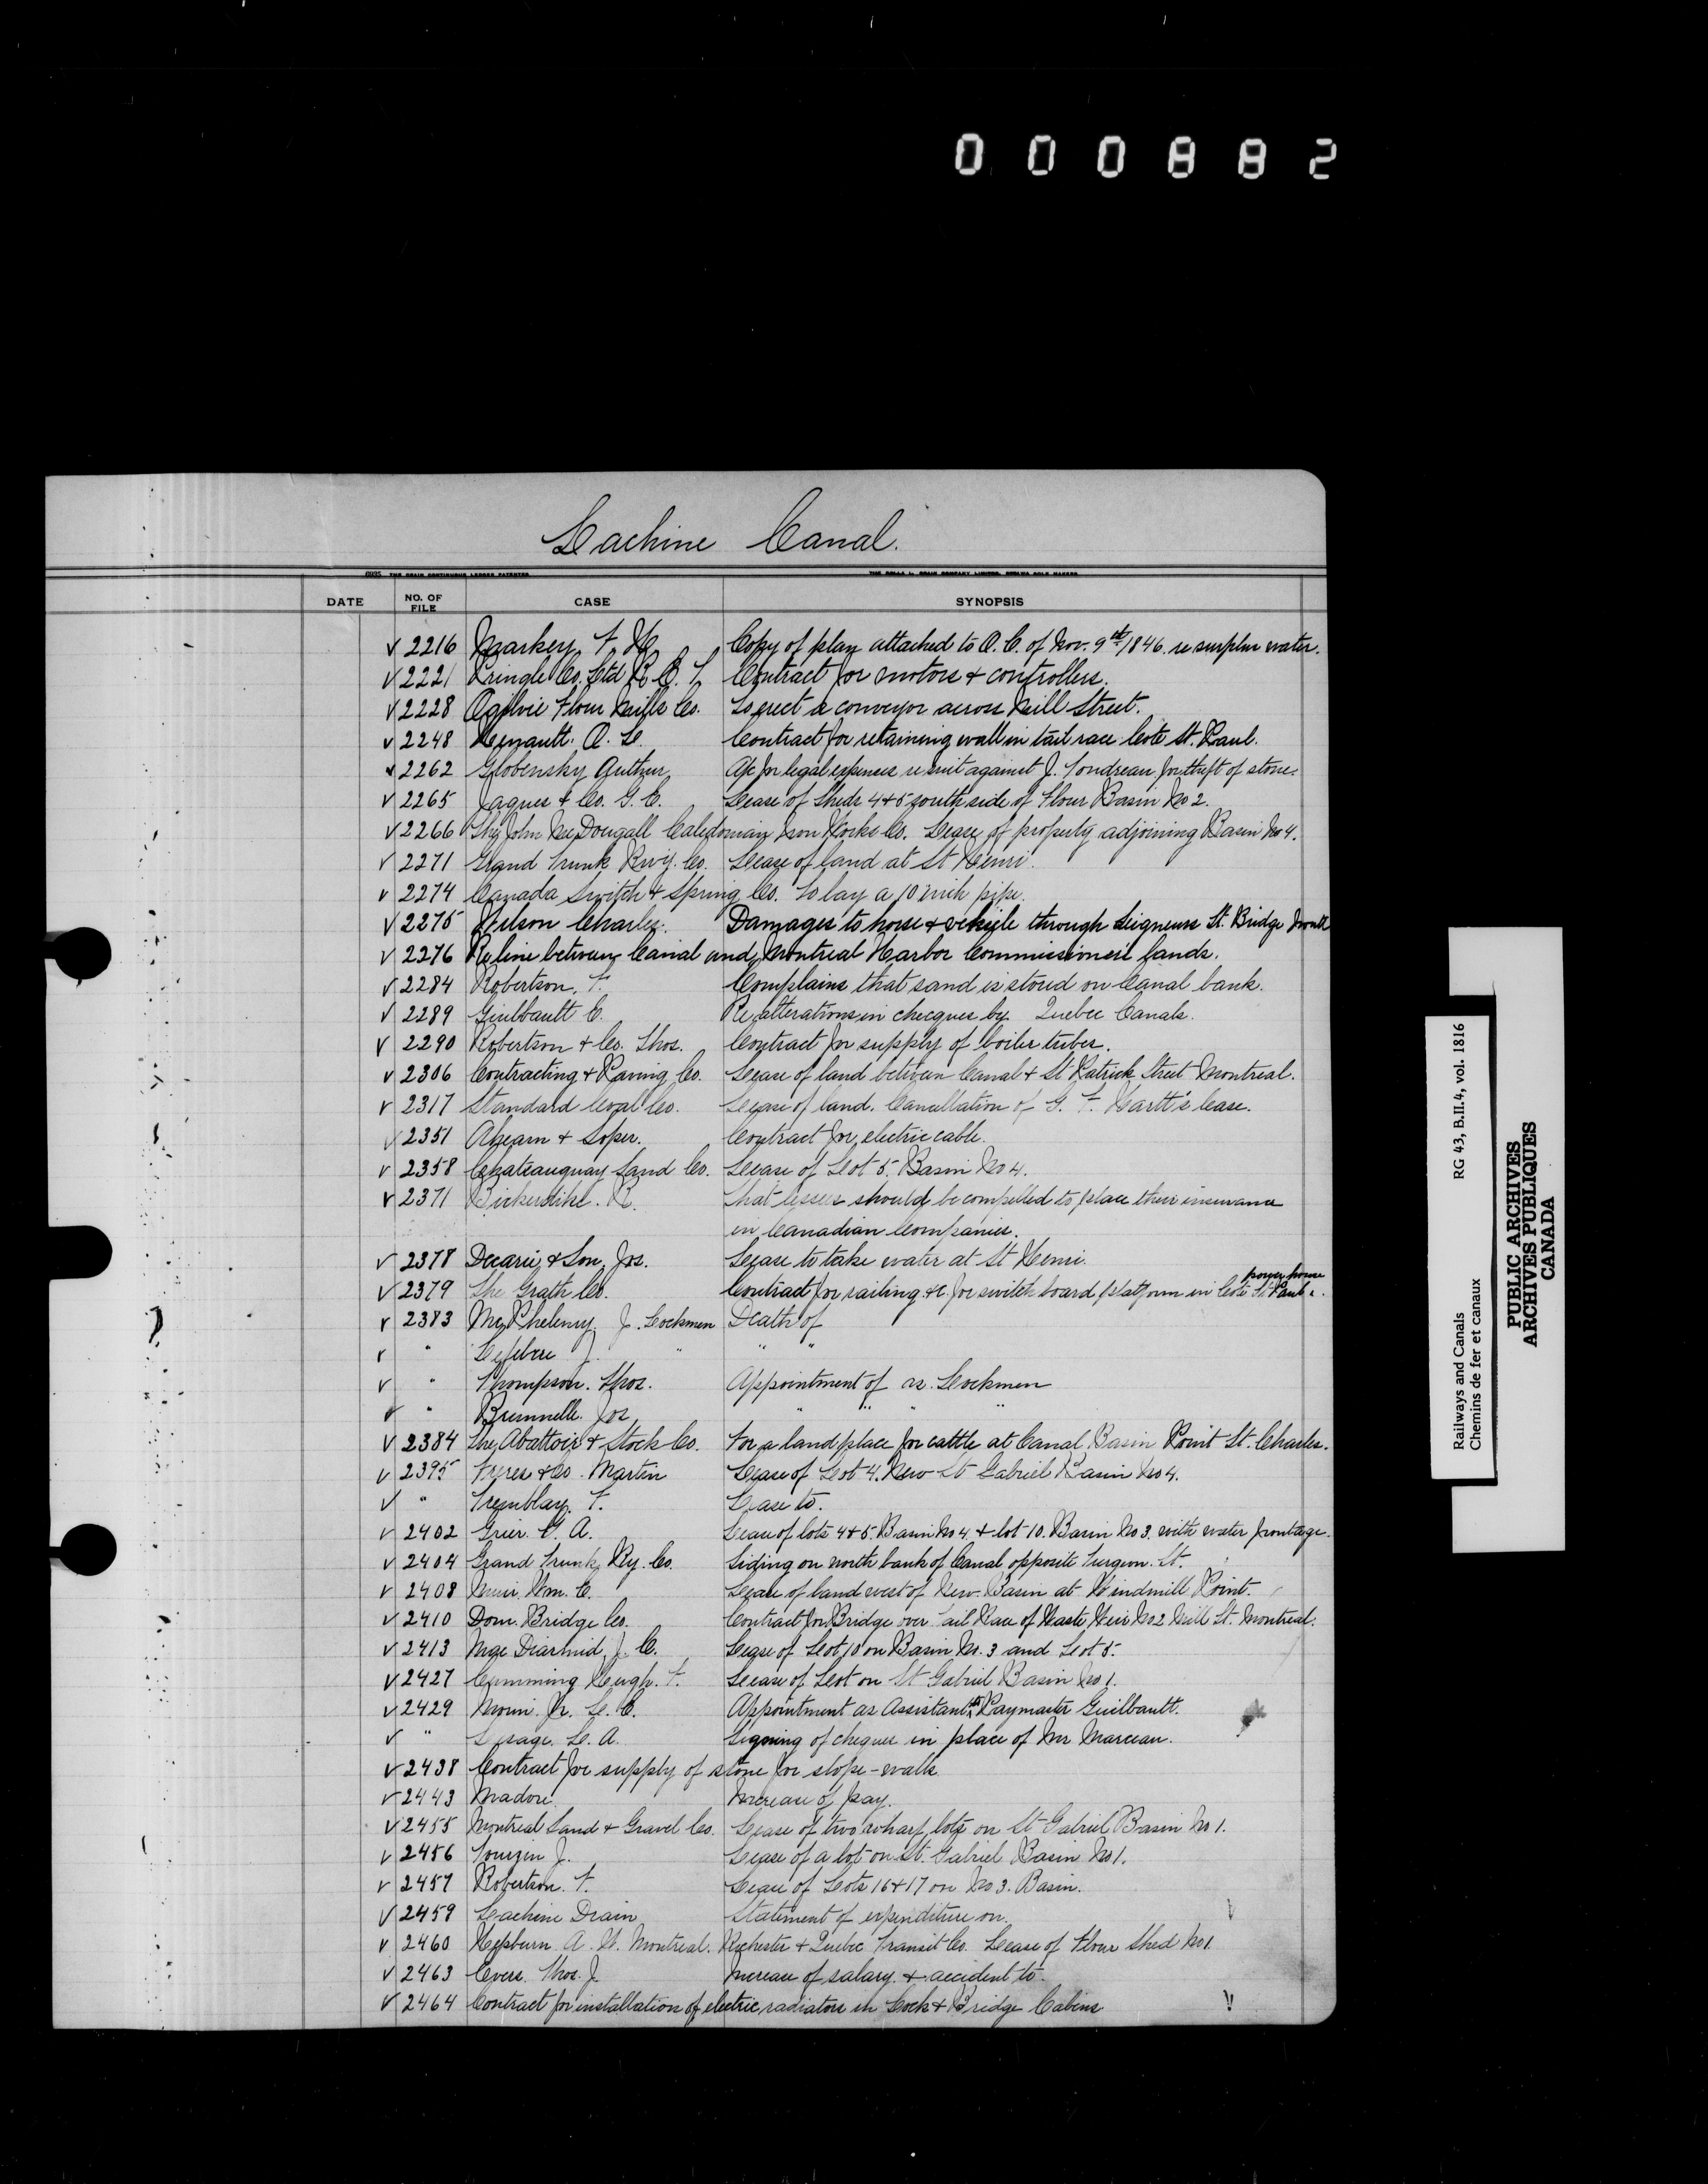 000882
Lachine Canal.
DATE NO. OF FILE CASE SYNOPSIS
✓ 2216 Markey F. H. Copy of plan attached to O.C. of Nov. 9th/1846. re surplus water.
✓ 2221 Pringle Co. Ltd R. E. T. Contract for motors & controllers.
✓ 2228 Ogilvie Flour Mills Co. To erect a conveyor across Mill Street.
✓ 2248 Henault. A. L. Contract for retaining wall in tail race Cote St. Paul.
✓ 2262 Globensky Arthur A/c for legal expenses re suit against J. Tondreau for theft of stone.
✓ 2265 Jaques & Co. G. E. Lease of Sheds 4 & 5 south side of Flour Basin No 2.
✓ 2266 The John McDougall Caledonian Iron Works Co. Lease of property adjoining Basin No 4.
✓ 2271 Grand Trunk Rwy. Co. Lease of land at St Henri.
✓ 2274 Canada Switch & Spring Co. To lay a 10 inch pipe.
✓ 2275 Wilson Charles. Damages to horse & vehicle through Seigneurs St. Bridge
✓ 2276 Re line between Canal and Montreal Harbor Commissioners' lands.
✓ 2284 Robertson. F. Complains that sand is stored on Canal bank.
✓ 2289 Guilbault E. Re alterations in checques by Quebec Canals.
✓ 2290 Robertson & Co. Thos. Contract for supply of boiler tubes.
✓ 2306 Contracting & Paving Co. Lease of land between Canal & St Patrick Street Montreal.
✓ 2317 Standard Coal Co. Lease of land. Cancellation of G. F. Hartt's lease.
✓ 2351 Ahearn & Soper. Contract for electric cable.
✓ 2358 Chateauguay Sand Co. Lease of Lot 5. Basin No 4.
✓ 2371 Bickerdike. R. That lessees should be compelled to place their insurance
in Canadian Companies.
✓ 2378 Decarie & Son, Jos. Lease to take water at St Henri.
power house
✓ 2379 The Grath Co. Contract for railing &c. for switch board platform in Cote St Paul
✓ 2383 McPhelemy J. Lockmen Death of
✓ " Lefebvre J. " " "
✓ " Thompson. Thos. Appointment of as Lockmen
✓ " Brunnelle. Jos. " " " "
✓ 2384 The Abattoir & Stock Co. For a land place for cattle at Canal Basin Point St. Charles.
✓ 2395 Freres & Co. Martin Lease of Lot 4. New St Gabriel Basin No 4.
✓ " Tremblay. F. Lease to.
✓ 2402 Grier. G. A. Lease of lots 4 & 5. Basin No 4. & lot 10. Basin No 3. with water frontage.
✓ 2404 Grand Trunk Ry. Co. Siding on north bank of Canal opposite Turgeon. St.
✓ 2408 Muir. Wm. C. Lease of land west of New Basin at Windmill Point.
✓ 2410 Dom. Bridge Co. Contract for Bridge over Tail Race of Waste Weir No 2 Mill St. Montreal.
✓ 2413 MacDiarmid J. C. Lease of Lot 10 on Basin No. 3 and Lot 5.
✓ 2427 Cumming Hugh. F. Lease of Lot on St Gabriel Basin No 1.
✓ 2429 Morin. Jr. L. E. Appointment as Assistant to Paymaster Guilbault.
✓ " Lesage. L. A. Signing of cheques in place of Mr Marceau.
✓ 2438 Contract for supply of stone for slope-walls
✓ 2443 Madore. Increase of pay.
✓ 2455 Montreal Sand & Gravel Co. Lease of two wharf lots on St Gabriel Basin No 1.
✓ 2456 Tourzin J. Lease of a lot on St. Gabriel Basin No 1.
✓ 2457 Robertson. F. Lease of Lots 16 & 17 on No 3. Basin.
✓ 2459 Lachine Drain Statement of expenditure on.
✓ 2460 Hepburn A. W. Montreal. Rochester & Quebec Transit Co. Lease of Flour Shed No 1.
✓ 2463 Evers. Thos. J. Increase of salary. & accident to.
✓ 2464 Contract for installation of electric radiators in Lock & Bridge Cabins
Railways and Canals RG 43, B.II.4, vol. 1816
Chemins de fer et canaux
PUBLIC ARCHIVES
ARCHIVES PUBLIQUES
CANADA